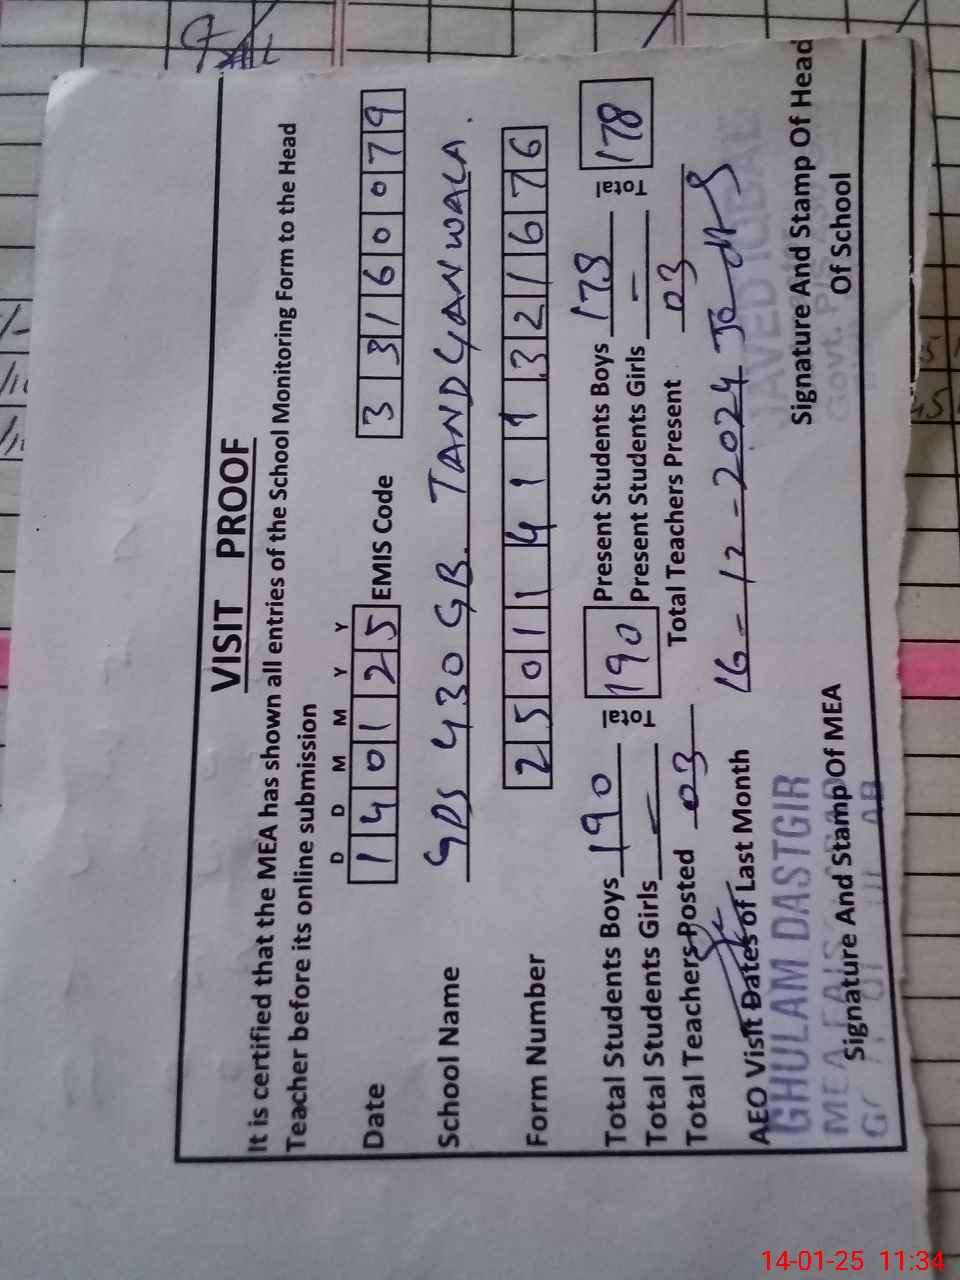 VISIT PROOF
It is certified that the MEA has shown all entries of the School Monitoring Form to the Head
Teacher before its online submission
D D M M Y Y
Date 140125 EMIS Code 33160079
School Name GPS 430 GB. TANDLIANWALA.
Form Number 25011411321676
Total Students Boys 190 Total 190 Present Students Boys 178 Total 178
Total Students Girls – Present Students Girls –
Total Teachers Posted 03 Total Teachers Present 03
AEO Visit Dates of Last Month 16-12-2024
GHULAM DASTGIR
JAVED IQBAL
MEA
Govt.
Signature And Stamp Of MEA
Signature And Stamp Of Head
Of School
14-01-25 11:34